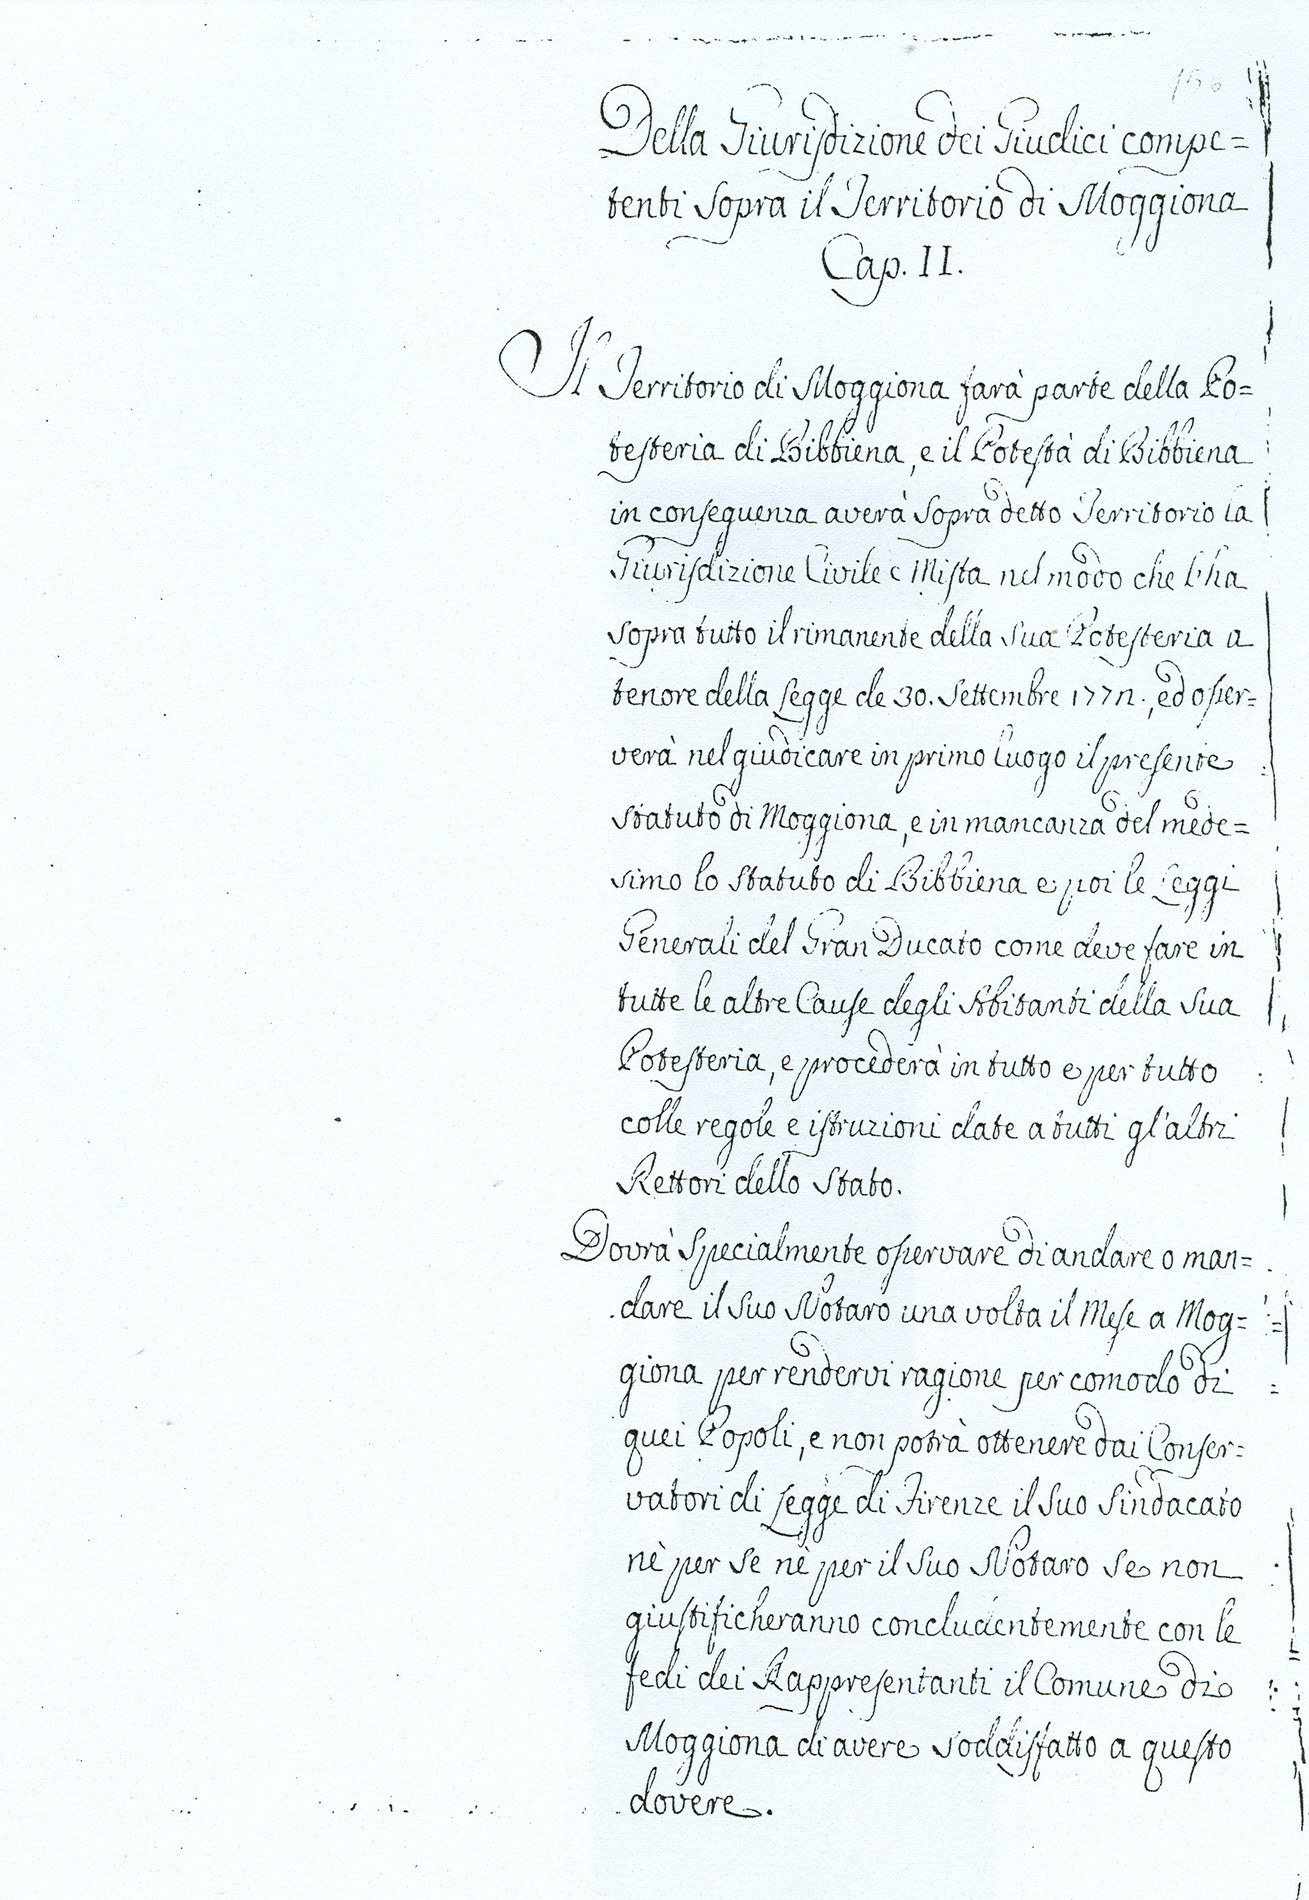 150
Della Giurisdizione dei Giudici compe=
tenti sopra il Territorio di Moggiona
Cap. II.
Il Territorio di Moggiona farà parte della Po=
testeria di Bibbiena, e il Potestà di Bibbiena
in conseguenza averà sopra detto Territorio la
Giurisdizione Civile e Mista nel modo che l'ha
sopra tutto il rimanente della sua Potesteria a
tenore della Legge de 30. Settembre 1772., ed osser=
verà nel giudicare in primo luogo il presente
statuto di Moggiona, e in mancanza del mede=
simo lo statuto di Bibbiena e poi le Leggi
Generali del Gran Ducato come deve fare in
tutte le altre Cause degli Abitanti della sua
Potesteria, e procederà in tutto e per tutto
colle regole e istruzioni date a tutti gl'altri
Rettori dello Stato.
Dovrà specialmente osservare di andare o man=
dare il suo Notaro una volta il Mese a Mog=
giona per rendervi ragione per comodo di
quei Popoli, e non potrà ottenere dai Conser=
vatori di Legge di Firenze il suo Sindacato
nè per se nè per il suo Notaro se non
giustificheranno concludentemente con le
fedi dei Rappresentanti il Comune di
Moggiona di avere soddisfatto a questo
dovere.